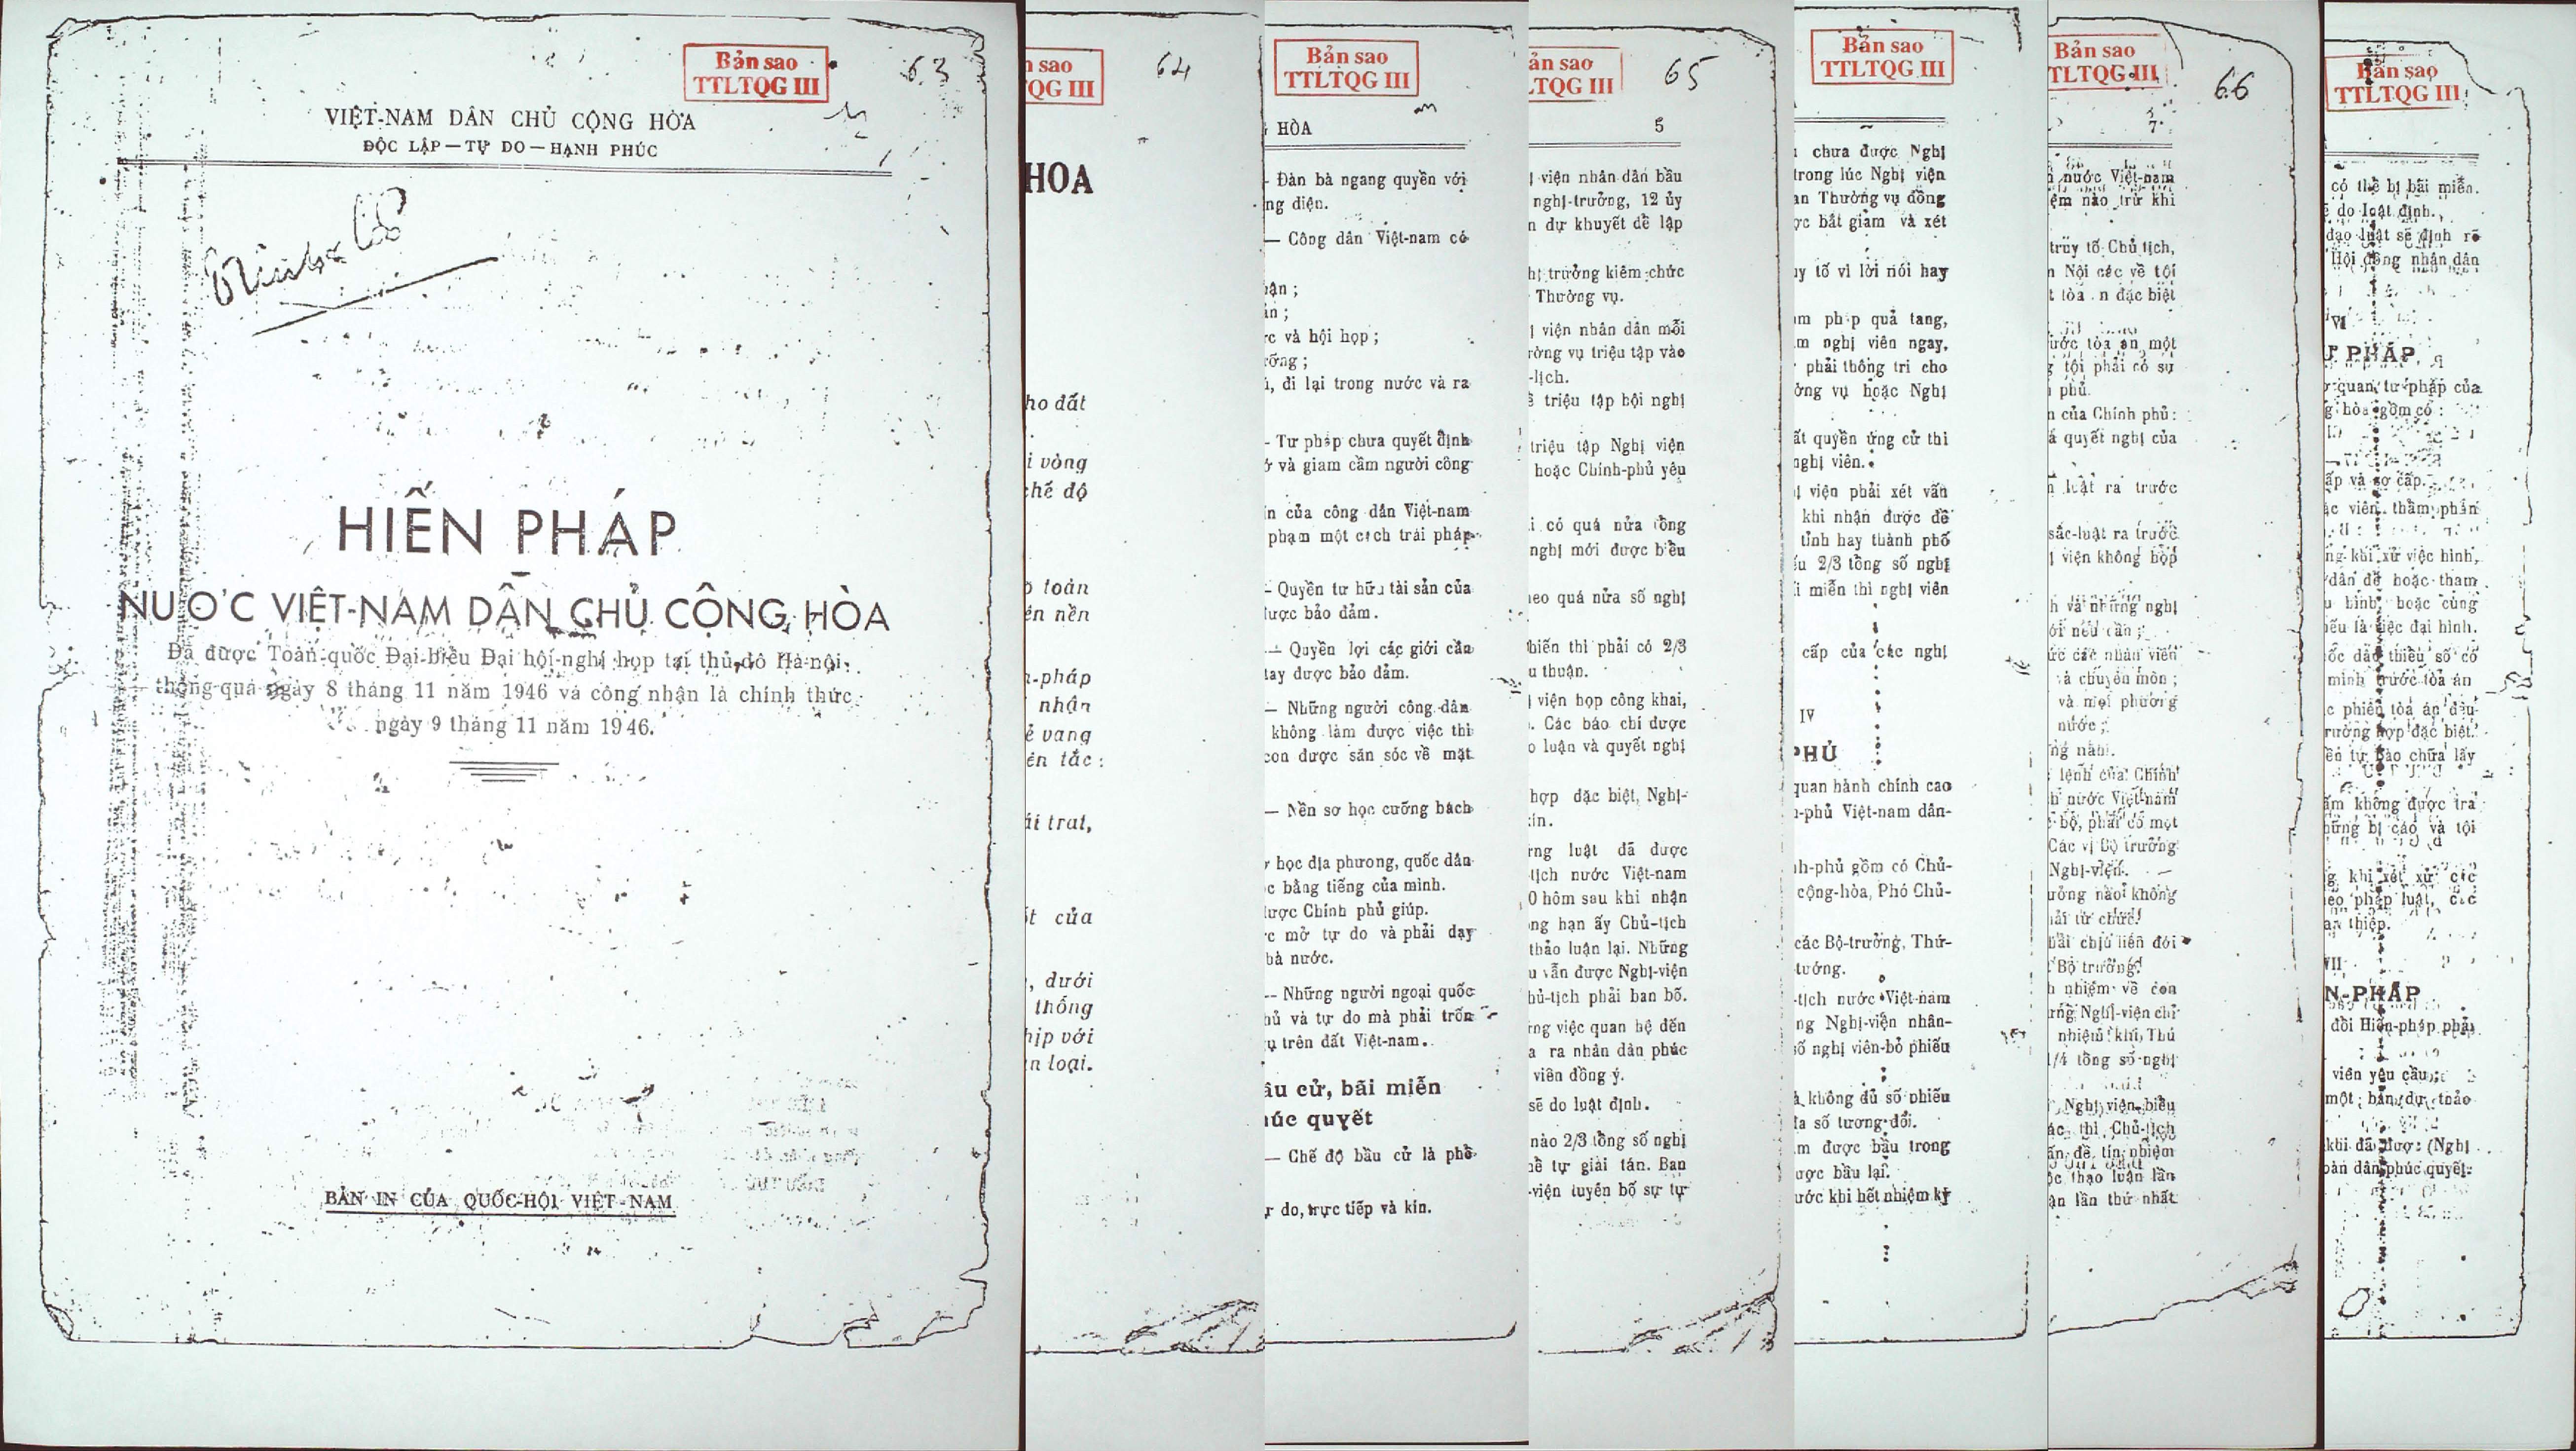 Bản sao
TTLTQG III
63
VIỆT-NAM DÂN CHỦ CỘNG HÒA
ĐỘC LẬP — TỰ DO — HẠNH PHÚC
HIẾN PHÁP
NƯỚC VIỆT-NAM DÂN CHỦ CỘNG HÒA
Đã được Toàn-quốc Đại-biểu Đại hội-nghị họp tại thủ đô Hà-nội
thông-qua ngày 8 tháng 11 năm 1946 và công nhận là chính thức
ngày 9 tháng 11 năm 1946.
BẢN IN CỦA QUỐC-HỘI VIỆT-NAM
n sao
QG III
64
HOA
ho đất
i vòng
chế độ
toàn
ên nền
n-pháp
nhận
ẻ vang
ên tắc :
ái trai,
t của
, dưới
thống
hịp với
n loại.
Bản sao
TTLTQG III
HÒA
- Đàn bà ngang quyền với
ng diện.
— Công dân Việt-nam có
ận ;
n ;
c và hội họp ;
ỡng ;
, đi lại trong nước và ra
- Tư pháp chưa quyết định
và giam cầm người công
n của công dân Việt-nam
phạm một cách trái pháp
- Quyền tư hữu tài sản của
được bảo đảm.
— Quyền lợi các giới cần
tay được bảo đảm.
— Những người công dân
không làm được việc thì
con được săn sóc về mặt
— Nền sơ học cưỡng bách
học địa phương, quốc dân
c bằng tiếng của mình.
được Chính phủ giúp.
c mở tự do và phải dạy
hà nước.
-- Những người ngoại quốc
hủ và tự do mà phải trốn
ụ trên đất Việt-nam.
ầu cử, bãi miễn
húc quyết
— Chế độ bầu cử là phổ
do, trực tiếp và kín.
ản sao
LTQG III
65
5
viện nhân dân bầu
nghị-trưởng, 12 ủy
n dự khuyết để lập
hị trưởng kiêm chức
Thường vụ.
viện nhân dân mỗi
ường vụ triệu tập vào
-lịch.
triệu tập hội nghị
triệu tập Nghị viện
hoặc Chính-phủ yêu
i có quá nửa tổng
nghị mới được biểu
heo quá nửa số nghị
hiến thì phải có 2/3
u thuận.
viện họp công khai,
. Các báo chí được
o luận và quyết nghị
hợp đặc biệt, Nghị-
ín.
ng luật đã được
tịch nước Việt-nam
0 hôm sau khi nhận
ng hạn ấy Chủ-tịch
thảo luận lại. Những
u vẫn được Nghị-viện
hủ-tịch phải ban bố.
ng việc quan hệ đến
a ra nhân dân phúc
viên đồng ý.
sẽ do luật định.
nào 2/3 tổng số nghị
hể tự giải tán. Ban
viện tuyên bố sự tự
Bản sao
TTLTQG III
chưa được Nghị
trong lúc Nghị viện
an Thường vụ đồng
ợc bắt giam và xét
uy tố vì lời nói hay
m pháp quả tang,
m nghị viên ngay.
phải thông tri cho
ờng vụ hoặc Nghị
ất quyền ứng cử thì
nghị viên.
viện phải xét vấn
khi nhận được đề
tỉnh hay thành phố
u 2/3 tổng số nghị
i miễn thì nghị viên
cấp của các nghị
IV
PHỦ
quan hành chính cao
-phủ Việt-nam dân-
nh-phủ gồm có Chủ-
cộng-hòa, Phó Chủ-
các Bộ-trưởng, Thứ-
tướng.
-tịch nước Việt-nam
ng Nghị-viện nhân-
số nghị viên bỏ phiếu
không đủ số phiếu
a số tương đối.
m được bầu trong
ược bầu lại.
ước khi hết nhiệm kỳ
Bản sao
TLTQG III
66
7
nước Việt-nam
ệm nào trừ khi
truy tố Chủ tịch,
n Nội các về tội
t tòa án đặc biệt
ước tòa án một
g tội phải có sự
phủ.
của Chính phủ :
quyết nghị của
luật ra trước
sắc-luật ra trước
viện không họp
h và những nghị
ới nếu cần ;
ức các nhân viên
và chuyên môn ;
và mọi phương
nước ;
ng năm.
lệnh của Chính
h nước Việt-nam
bộ, phải có một
Các vị Bộ trưởng
Nghị-viện.
ưởng nào không
hải từ chức.
hải chịu liên đới
Bộ trưởng.
h nhiệm về con
ưng Nghị-viện chỉ
nhiệm khi Thủ
1/4 tổng số nghị
Nghị viện biểu
ác thì Chủ-tịch
ấn đề tín nhiệm
ộc thảo luận lần
ận lần thứ nhất
Bản sao
TTLTQG III
có thể bị bãi miễn.
do luật định.
đạo luật sẽ định rõ
Hội đồng nhân dân
VI
Ư PHÁP
quan tư pháp của
g hòa gồm có :
ấp và sơ cấp.
ác viên thẩm phán
ng khi xử việc hình,
dân để hoặc tham
u hình, hoặc cùng
nếu là việc đại hình.
ốc dân thiểu số có
mình trước tòa án
c phiên tòa án đều
rường hợp đặc biệt.
ền tự bào chữa lấy
ấm không được tra
hững bị cáo và tội
g khi xét xử các
heo pháp luật, các
an thiệp.
VII
N-PHÁP
đổi Hiến-pháp phải
viên yêu cầu ;
một bản dự thảo
khi đã được Nghị
oàn dân phúc quyết.